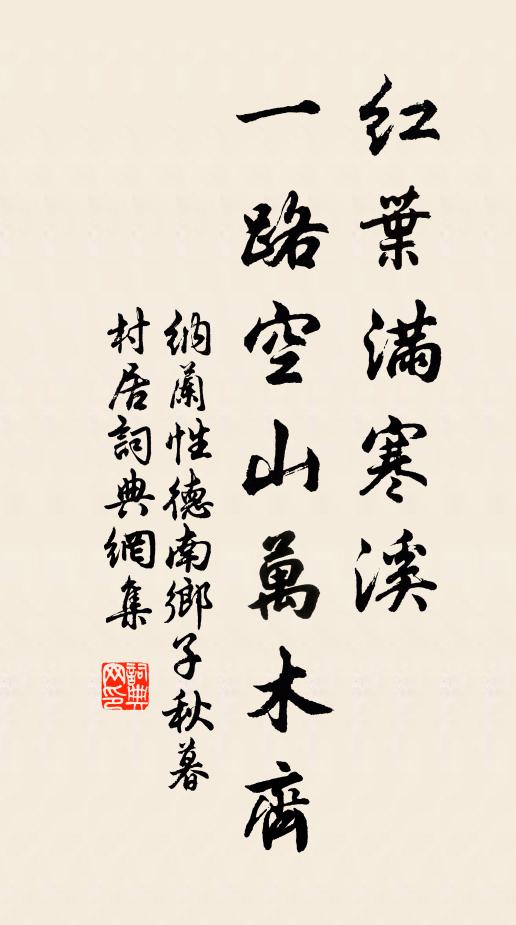 紅葉滿寒溪
一路空山萬木齊
納蘭性德南鄉子秋暮
村居詞典網集
詞典
网印